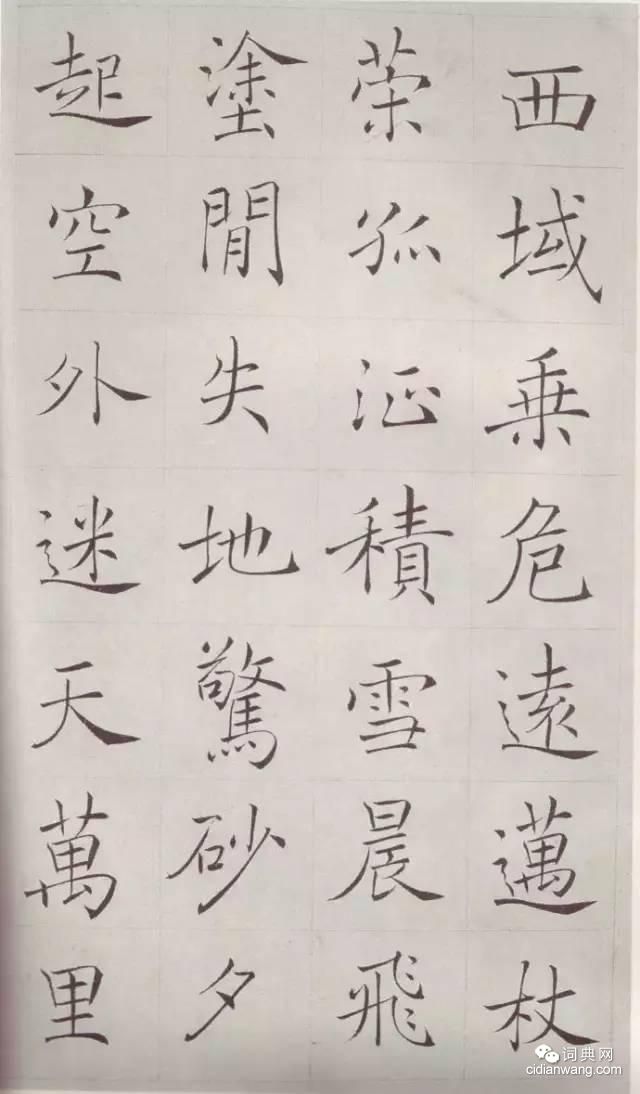 西域乗危遠邁杖
茦孤征積雪晨飛
塗閒失地驚砂夕
起空外迷天萬里
词典网
cidianwang.com